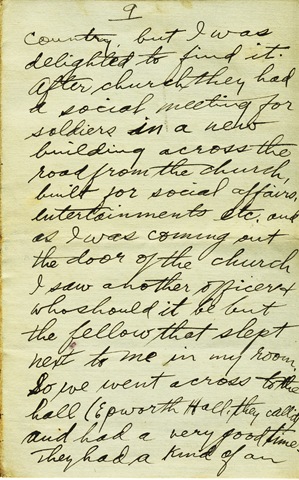 9
country but I was
delighted to find it.
After, church, they had
a social meeting for
soldiers in a new
building across the
road from the church,
built for social affairs,
entertainments etc. and
as I was coming out
the door of the church
I saw another officer &
who should it be but
the fellow that slept
next to me in my room.
So we went across to the
hall (Epworth Hall, they call it)
and had a very good time.
They had a kind of an